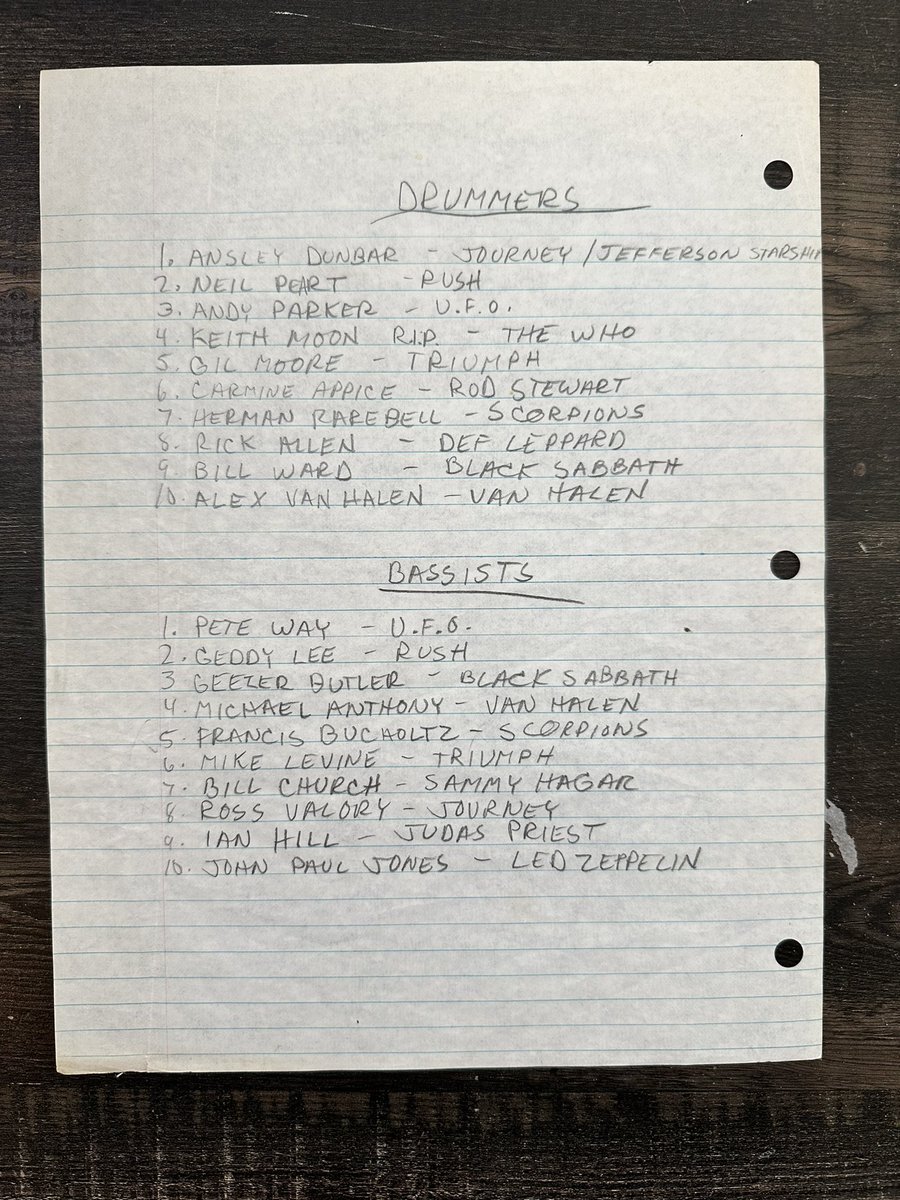 DRUMMERS
1. ANSLEY DUNBAR - JOURNEY / JEFFERSON STARSHIP
2. NEIL PEART - RUSH
3. ANDY PARKER - U.F.O.
4. KEITH MOON R.I.P. - THE WHO
5. GIL MOORE - TRIUMPH
6. CARMINE APPICE - ROD STEWART
7. HERMAN RAREBELL - SCORPIONS
8. RICK ALLEN - DEF LEPPARD
9 BILL WARD - BLACK SABBATH
10. ALEX VAN HALEN - VAN HALEN
BASSISTS
1. PETE WAY - U.F.O.
2. GEDDY LEE - RUSH
3 GEEZER BUTLER - BLACK SABBATH
4. MICHAEL ANTHONY - VAN HALEN
5. FRANCIS BUCHOLTZ - SCORPIONS
6. MIKE LEVINE - TRIUMPH
7. BILL CHURCH - SAMMY HAGAR
8 ROSS VALORY - JOURNEY
9. IAN HILL - JUDAS PRIEST
10. JOHN PAUL JONES - LED ZEPPELIN